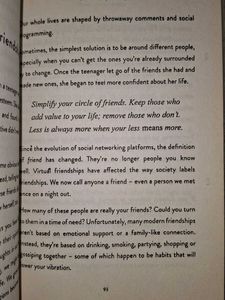 ur whole lives are shaped by throwaway comments and social
programming.
metimes, the simplest solution is to be around different people,
specially when you can't get the ones you're already surrounded
y to change. Once the teenager let go of the friends she had and
ade new ones, she began to feel more confident about her life.
Simplify your circle of friends. Keep those who
add value to your life; remove those who don't.
Less is always more when your less means more.
ince the evolution of social networking platforms, the definition
f friend has changed. They're no longer people you know
well. Virtual friendships have affected the way society labels
iendships. We now call anyone a friend – even a person we met
nce on a night out.
How many of these people are really your friends? Could you turn
o them in a time of need? Unfortunately, many modern friendships
ren't based on emotional support or a family-like connection.
nstead, they're based on drinking, smoking, partying, shopping or
ossiping together – some of which happen to be habits that will
ower your vibration.
93